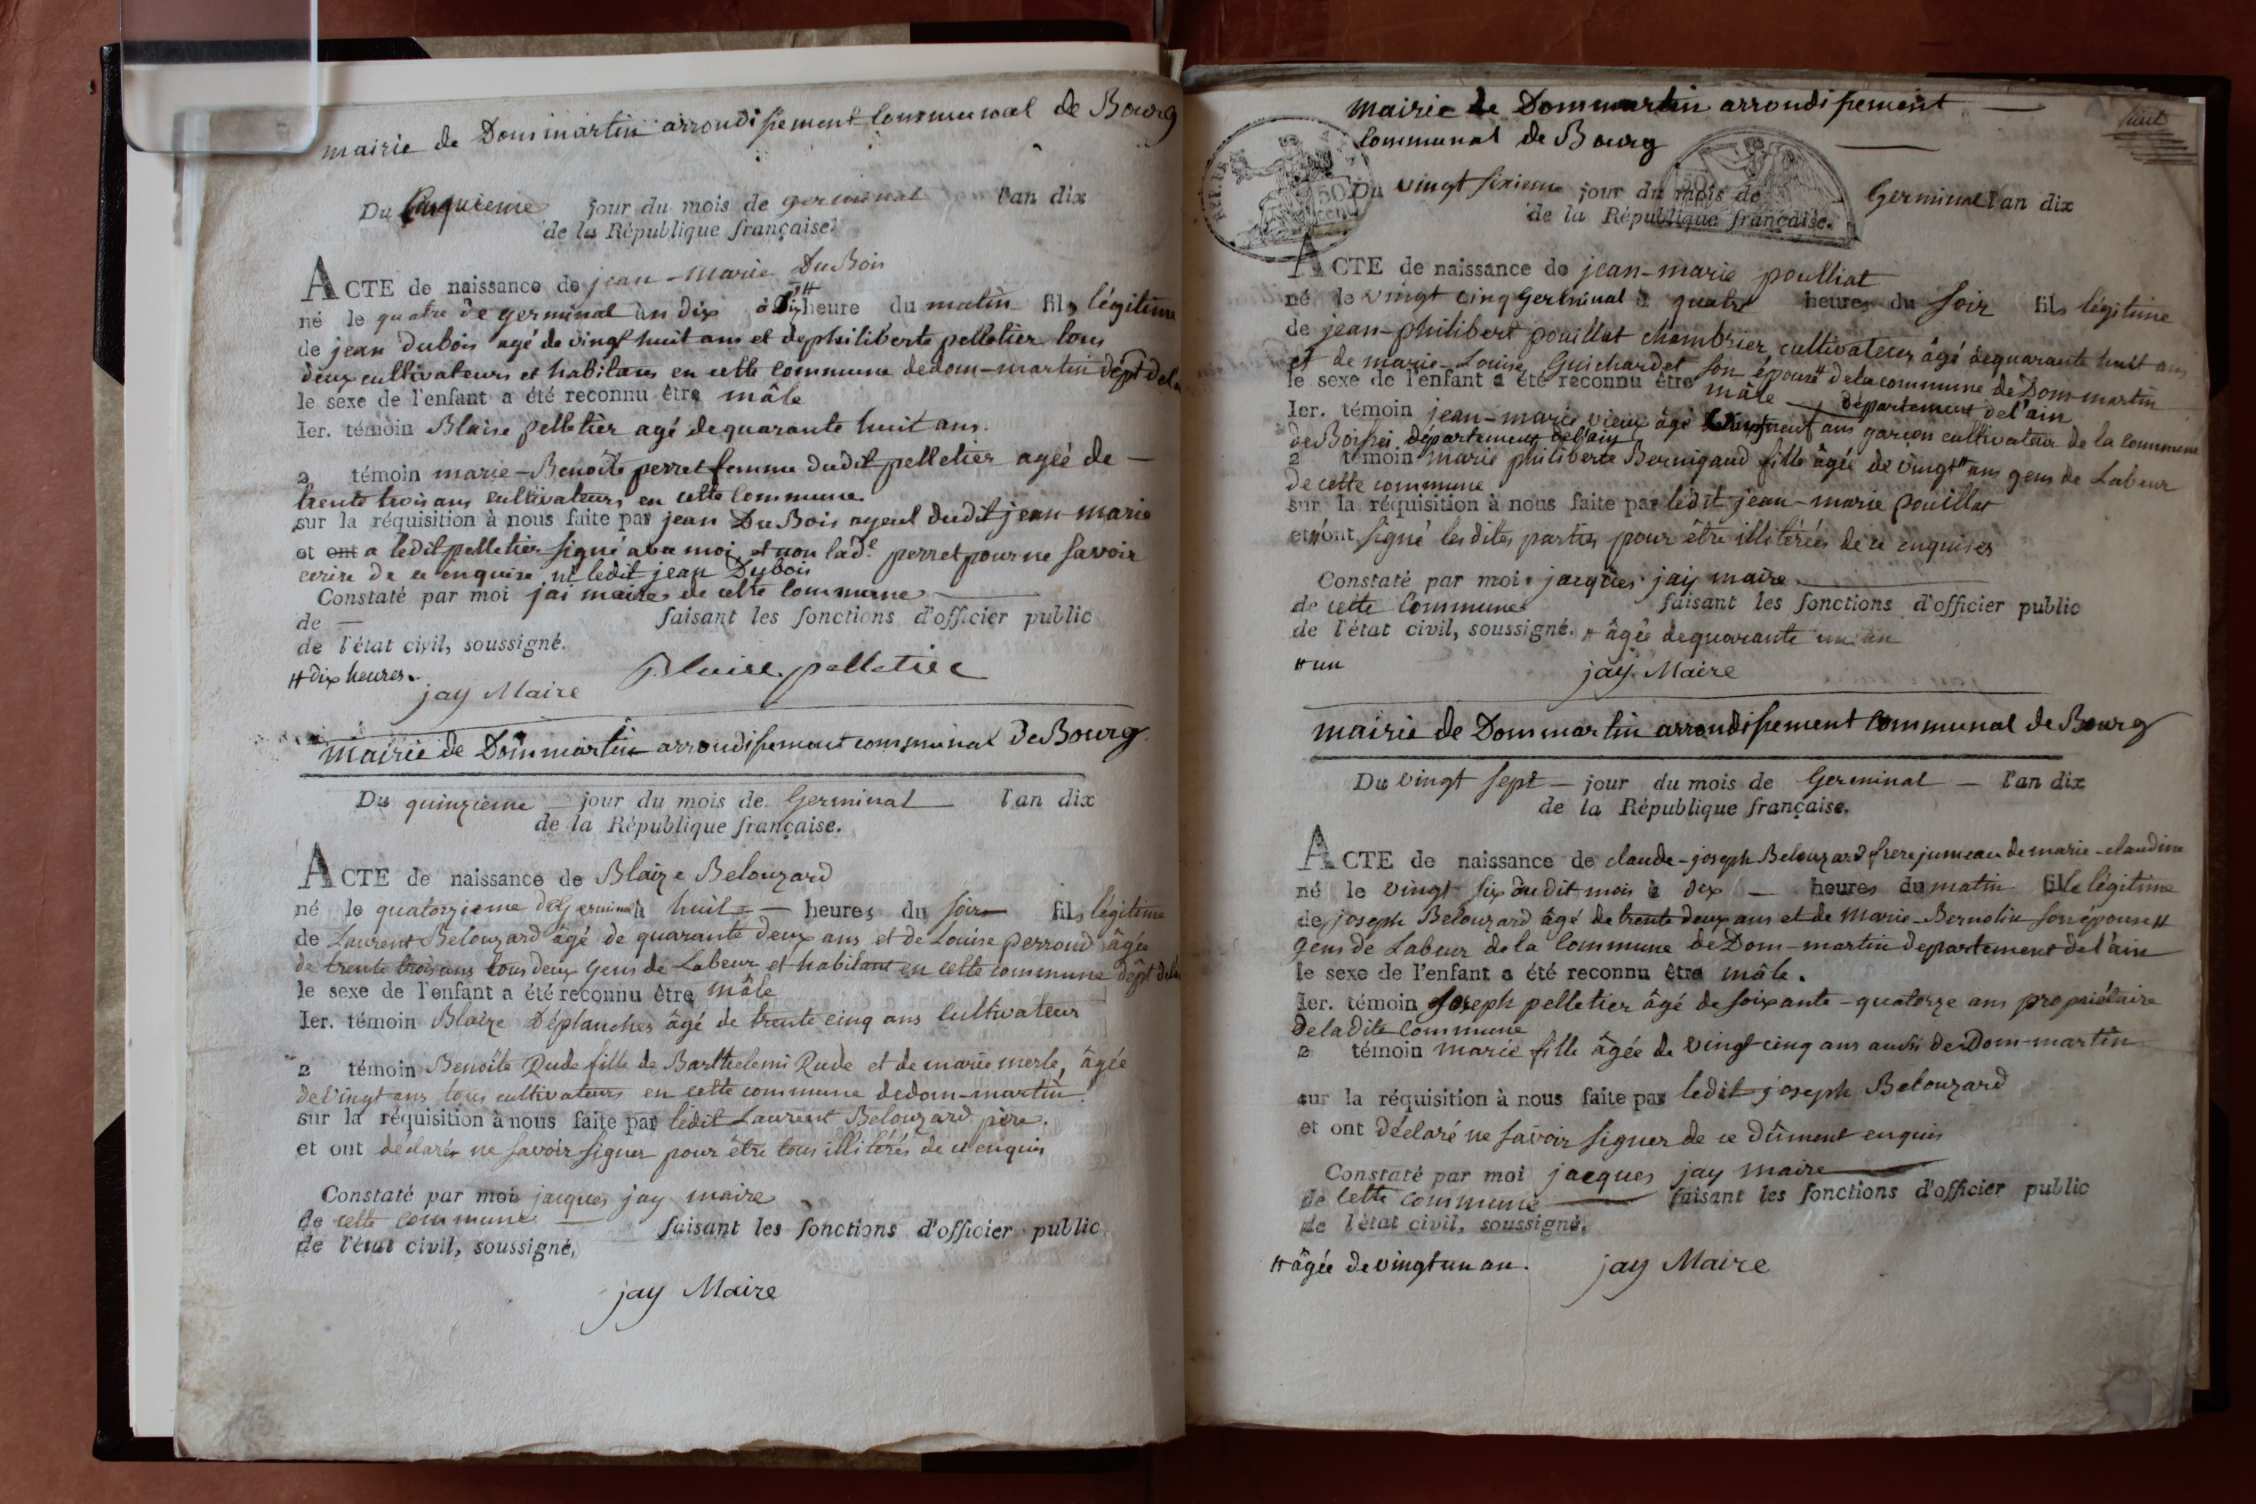 mairie de Dommartin arrondissement communal de Bourg
Du cinquieme jour du mois de germinal l'an dix
de la République française.
ACTE de naissance de jean-marie DuBois
né le quatre de germinal an dix à heure du matin fils légitime
de jean dubois agé de vingt huit ans et de philiberte pelletier tous
deux cultivateurs et habitans en cette commune de dom-martin dépt de
le sexe de l'enfant a été reconnu être mâle
Ier. témoin Blaise pelletier agé de quarante huit ans.
2 témoin marie-Benoite perret femme dudit pelletier agée de
trente trois ans cultivateurs en cette commune
sur la réquisition à nous faite par jean DuBois ayeul dudit jean marie
et ont a ledit pelletier signé avec moi et non lade perret pour ne savoir
ecrire de ce enquise ni ledit jean Dubois
Constaté par moi jai maire de cette commune
de faisant les fonctions d'officier public
de l'état civil, soussigné.
# dix heures.
jay Maire Blaise pelletier
mairie de Dommartin arrondissement communal de Bourg
Du quinzieme jour du mois de Germinal l'an dix
de la République française.
ACTE de naissance de Blaize Belouzard
né le quatorzieme de Germinal à huit heures du soir fils légitime
de Laurent Belouzard âgé de quarante deux ans et de Louise perroud âgée
de trente trois ans tous deux gens de Labeur et habitant en cette commune dépt de
le sexe de l'enfant a été reconnu être mâle
Ier. témoin Blaize Déplanches âgé de trente cinq ans cultivateur
2 témoin Benoite Rude fille de Barthelemi Rude et de marie merle, âgée
de vingt ans tous cultivateurs en cette commune de dom-martin
sur la réquisition à nous faite par ledit Laurent Belouzard père.
et ont déclarés ne savoir signer pour être tous illitérés de ce enquis
Constaté par moi jacques jay maire
de cette commune faisant les fonctions d'officier public
de l'état civil, soussigné,
jay Maire
huit
mairie de Dommartin arrondissement
communal de Bourg
Du vingt sixieme jour du mois de Germinal l'an dix
de la République française.
ACTE de naissance de jean-marie poulliat
né le vingt cinq Germinal à quatre heures du soir fils légitime
de jean-philibert pouillat chambrier cultivateur âgé de quarante huit ans
et de marie-Louise Guichardet son épouse # de la commune de Dom-martin
le sexe de l'enfant a été reconnu être mâle département de l'ain
Ier. témoin jean-marie vieux âgé vingt neuf ans garçon cultivateur de la commune
de Boissei département de l'ain
2 témoin marie philiberte Bernigaud fille âgée de vingt # ans gens de Labeur
de cette commune
sur la réquisition à nous faite par ledit jean-marie pouillat
et n'ont signé les dites parties pour être illitérées de ce enquises
Constaté par moi jacques jay maire
de cette commune faisant les fonctions d'officier public
de l'état civil, soussigné. # âgée de quarante un an
# un
jay Maire
mairie de Dommartin arrondissement communal de Bourg
Du vingt sept jour du mois de Germinal l'an dix
de la République française.
ACTE de naissance de claude-joseph Belouzard frere jumeau de marie-claudine
né le vingt six du dit mois à dix heures du matin fils légitime
de joseph Belouzard âgé de trente deux ans et de Marie-Bernolin son épouse #
gens de Labeur de la commune de Dom-martin departement de l'ain
le sexe de l'enfant a été reconnu être mâle.
Ier. témoin joseph pelletier âgé de soixante-quatorze ans propriétaire
de la dite commune
2 témoin marie fille âgée de vingt cinq ans aussi de Dom-martin
sur la réquisition à nous faite par ledit joseph Belouzard
et ont déclaré ne savoir signer de ce dûment enquis
Constaté par moi jacques jay maire
de cette commune faisant les fonctions d'officier public
de l'état civil, soussigné.
# âgée de vingt un an.
jay Maire